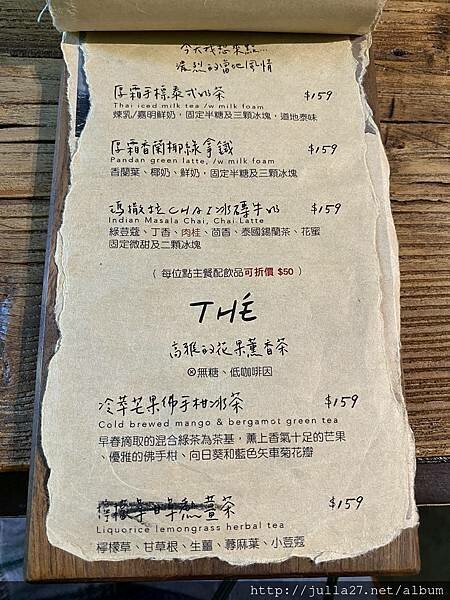 今天我想來點...
濃烈的當地風情
厚霜手標泰式奶茶 $159
Thai iced milk tea /w milk foam
煉乳/嘉明鮮奶，固定半糖及三顆冰塊，道地泰味
厚霜香蘭椰綠拿鐵 $159
Pandan green latte, /w milk foam
香蘭葉、椰奶、鮮奶，固定半糖及三顆冰塊
瑪撒拉CHAI冰磚牛奶 $159
Indian Masala Chai, Chai Latte
綠荳蔻、丁香、肉桂、茴香、泰國錫蘭茶、花蜜
固定微甜及二顆冰塊
( 每位點主餐配飲品可折價 $50 )
THÉ
高雅的花果薰香茶
⊗無糖、低咖啡因
冷萃芒果佛手柑冰茶 $159
Cold brewed mango & bergamot green tea
早春摘取的混合綠茶為茶基，薰上香氣十足的芒果
、優雅的佛手柑、向日葵和藍色矢車菊花瓣
檸檬草甘草熱薑茶 $159
Liquorice lemongrass herbal tea
檸檬草、甘草根、生薑、蕁麻葉、小荳蔻
http://julla27.net/album